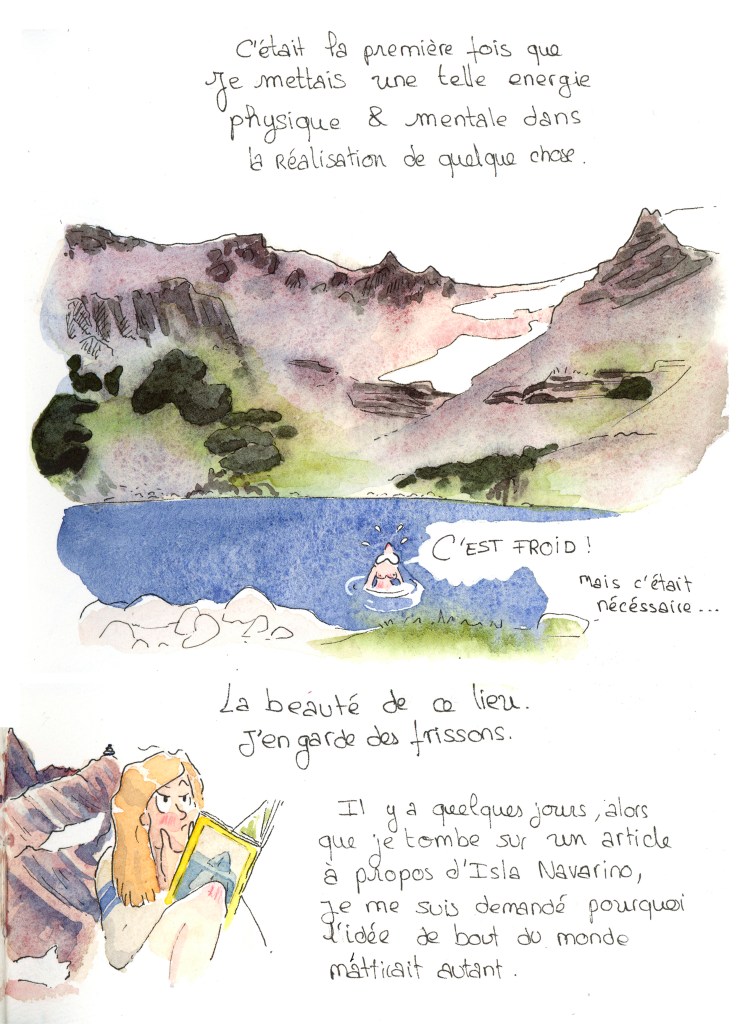 C'était la première fois que
je mettais une telle energie
physique & mentale dans
la réalisation de quelque chose.
C'EST FROID !
mais c'était
nécéssaire...
La beauté de ce lieu.
J'en garde des frissons.
Il y a quelques jours, alors
que je tombe sur un article
à propos d'Isla Navarino,
je me suis demandé pourquoi
l'idée de bout du monde
m'attirait autant.